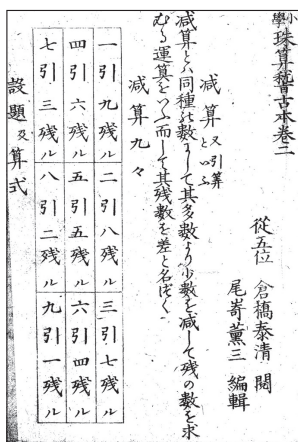 小學 珠算稽古本巻二
從五位 倉橋泰清 閲
尾嵜薫三 編輯
減算 又引算といふ
減算とハ同種の数にして其多数より少数を減して残の数を求
むる運算をいふ而して其残数を差と名づく
減算九々
一引九残ル 二引八残ル 三引七残ル
四引六残ル 五引五残ル 六引四残ル
七引三残ル 八引二残ル 九引一残ル
設題及算式